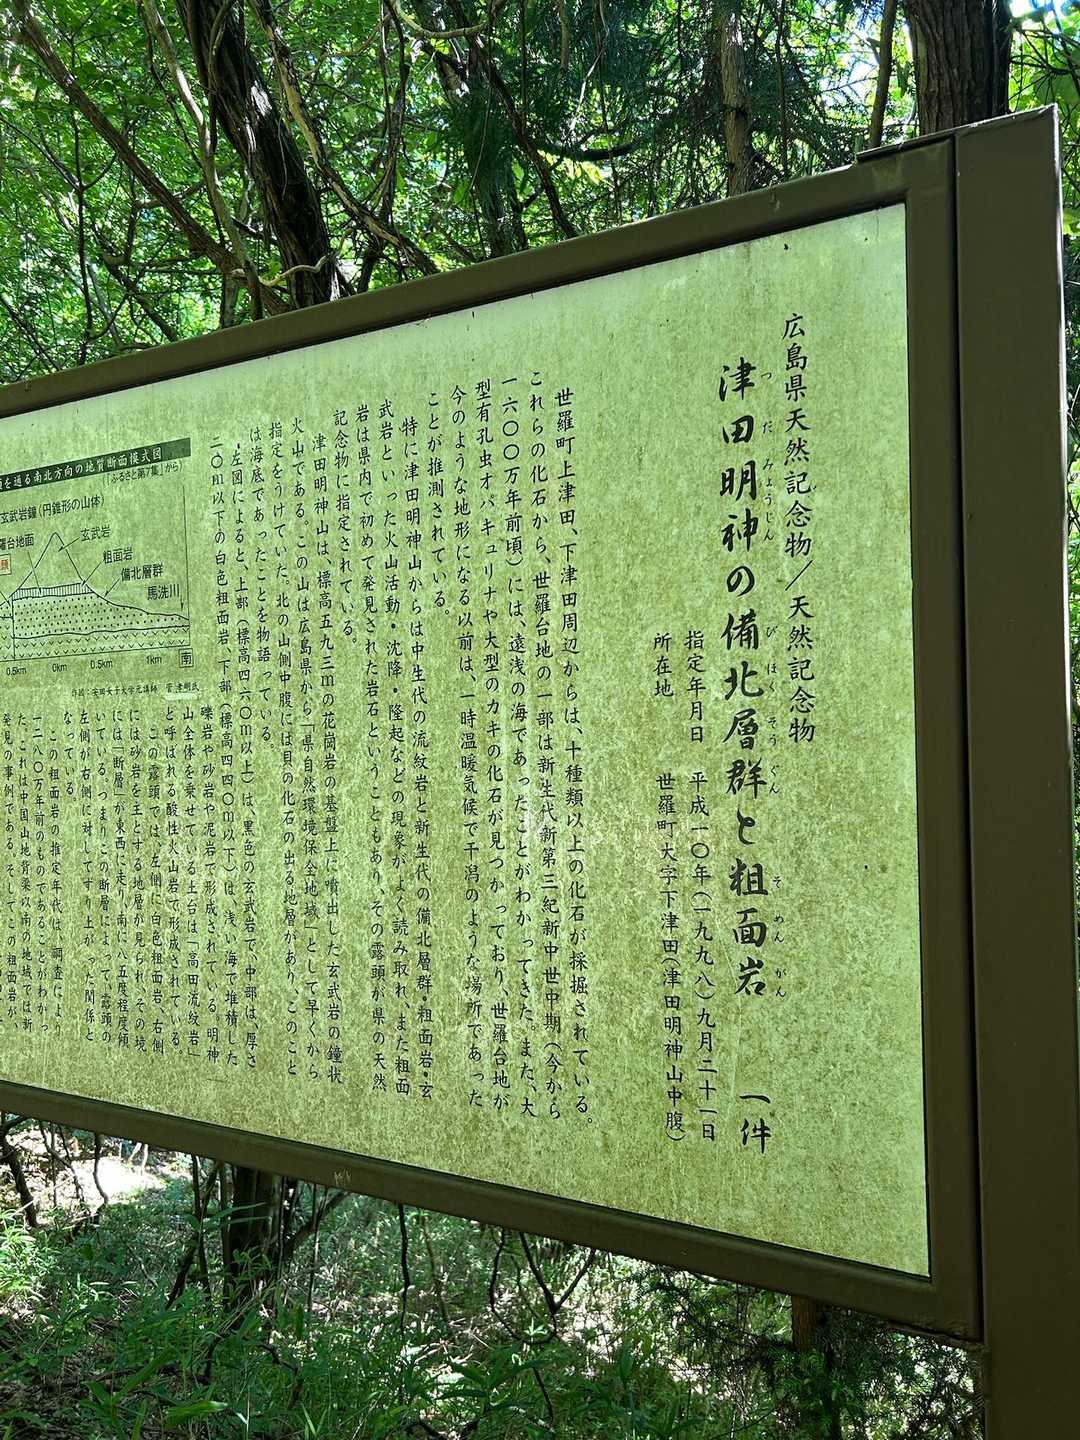 広島県天然記念物／天然記念物
津田明神の備北層群と粗面岩　一件
つだみょうじん　びほくそうぐん　そめんがん
指定年月日　平成一〇年（一九九八）九月二十一日
所在地　世羅町大字下津田（津田明神山中腹）
世羅町上津田、下津田周辺からは、十種類以上の化石が採掘されている。
これらの化石から、世羅台地の一部は新生代新第三紀新中世中期（今から
一六〇〇万年前頃）には、遠浅の海であったことがわかってきた。また、大
型有孔虫オパキュリナや大型のカキの化石が見つかっており、世羅台地が
今のような地形になる以前は、一時温暖気候で干潟のような場所であった
ことが推測されている。
特に津田明神山からは中生代の流紋岩と新生代の備北層群・粗面岩・玄
武岩といった火山活動・沈降・隆起などの現象がよく読み取れ、また粗面
岩は県内で初めて発見された岩石ということもあり、その露頭が県の天然
記念物に指定されている。
津田明神山は、標高五九三ｍの花崗岩の基盤上に噴出した玄武岩の鐘状
火山である。この山は広島県から「県自然環境保全地域」として早くから
指定をうけていた。北の山側中腹には貝の化石の出る地層があり、このこと
は海底であったことを物語っている。
左図によると、上部（標高四六〇ｍ以上）は、黒色の玄武岩で、中部は、厚さ
二〇ｍ以下の白色粗面岩、下部（標高四四〇ｍ以下）は、浅い海で堆積した
礫岩や砂岩や泥岩で形成されている。明神
山全体を乗せている土台は「高田流紋岩」
と呼ばれる酸性火山岩で形成されている。
この露頭では、左側に白色粗面岩、右側
には砂岩を主とする地層が見られ、その境
には「断層」が東西に走り、南に八五度程度傾
いている。つまりこの断層によって、露頭の
左側が右側に対してずり上がった関係と
なっている。
この粗面岩の推定年代は、調査により
一二八〇万年前のものであることがわかっ
た。これは中国山地背梁以南の地域では新
発見の事例である。そしてこの粗面岩が、
を通る南北方向の地質断面模式図
（「ふるさと第7集」から）
玄武岩鐘（円錐形の山体）
台地面
玄武岩
粗面岩
備北層群
馬洗川
頭
0.5km　0km　0.5km　1km　南